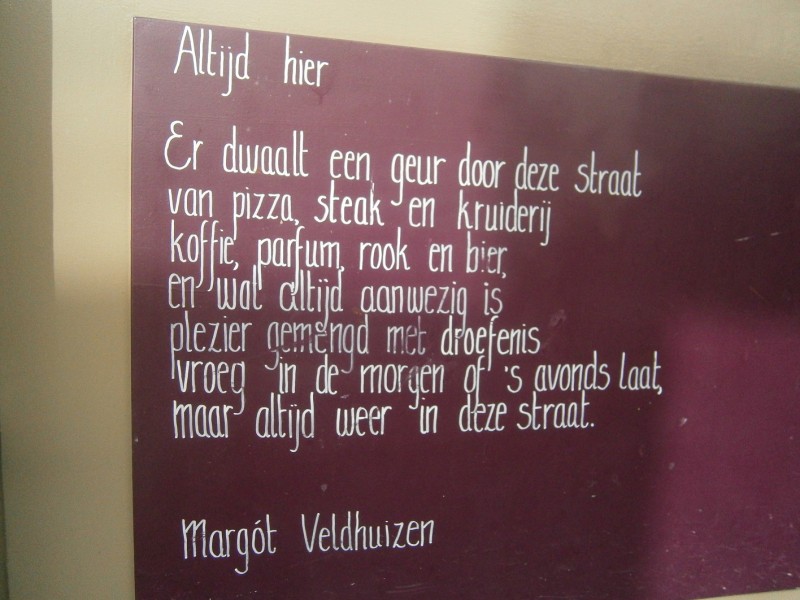 Altijd hier
Er dwaalt een geur door deze straat
van pizza, steak en kruiderij
koffie, parfum, rook en bier,
en wat altijd aanwezig is
plezier gemengd met droefenis
vroeg in de morgen of 's avonds laat,
maar altijd weer in deze straat.
Margót Veldhuizen